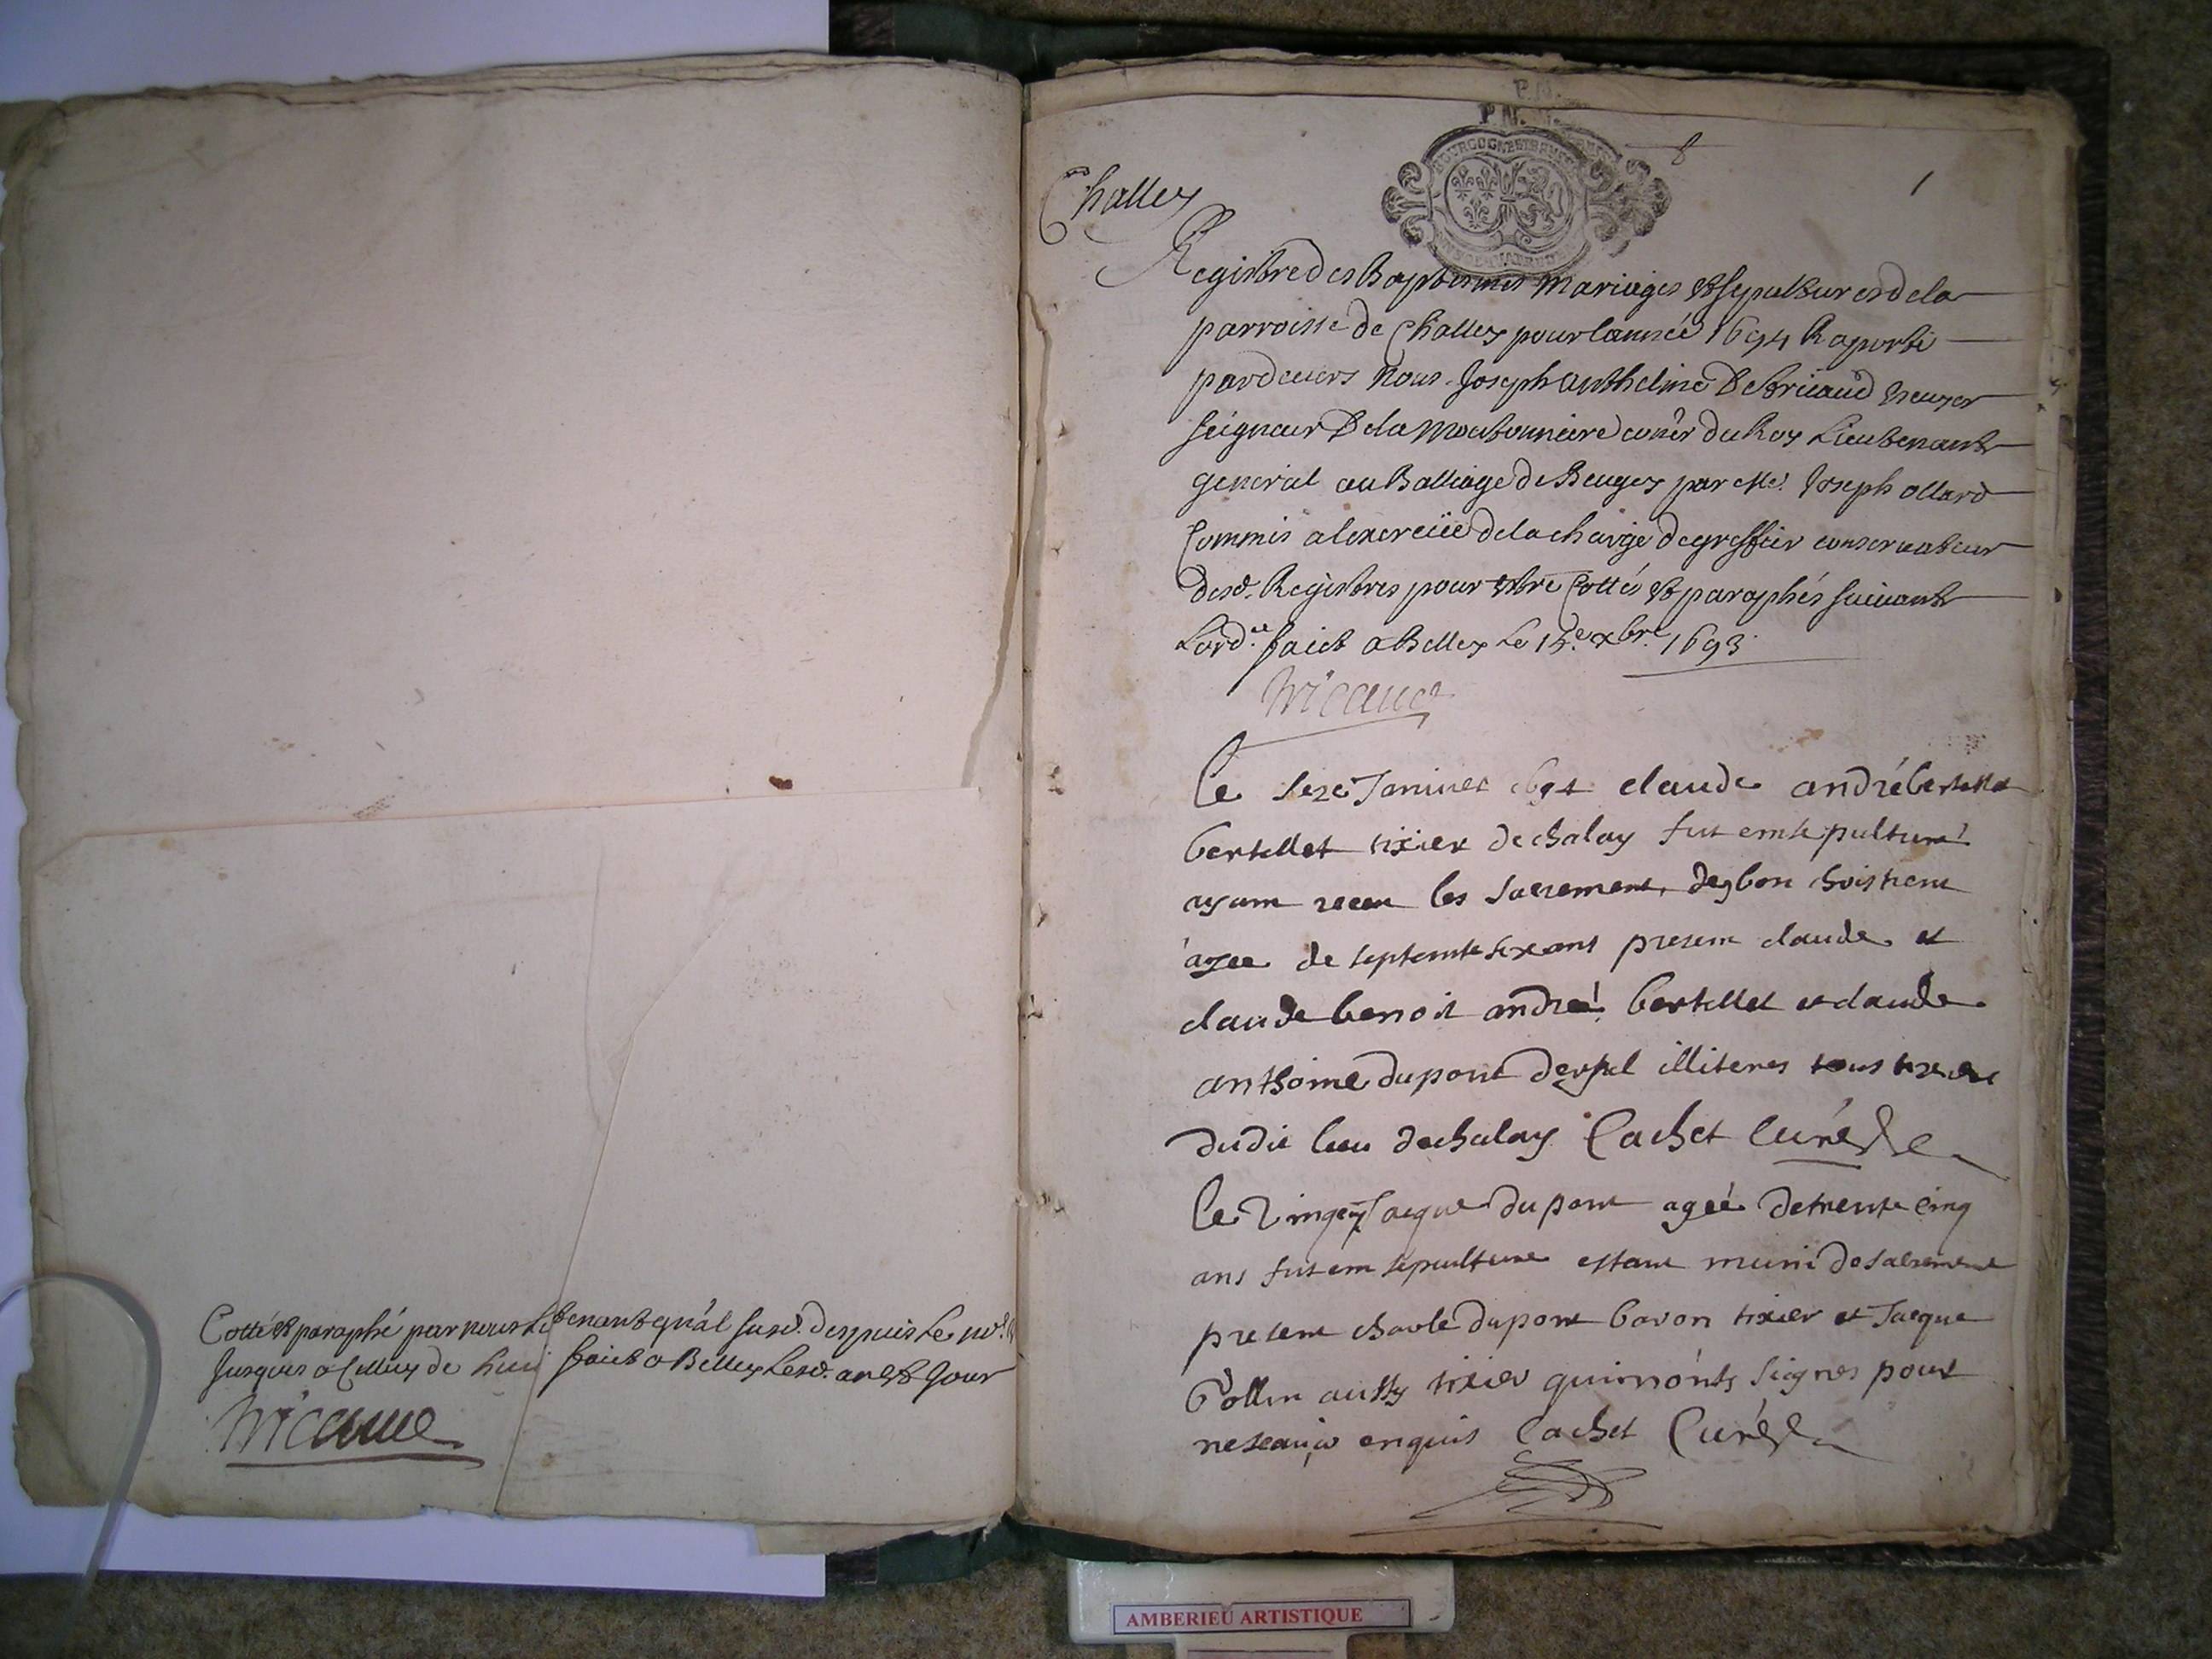 Cotté et paraphé par nous Lietenant gnâl susd. despuis Le
Jusques a Celluy de huit faict a Belley Lesd. an et Jour
P. N.
P. N.
BOURGOGNE ET BRESSE
1
Challey
Registre des Baptesmes Mariages et sepultures de la
parroisse de Challey pour lannée 1694 Raporté
pardeuers Nous Joseph Anthelme De Tricaud Escuyer
seigneur De la Moutonniere coner du Roy Lieutenant
general au Balliage de Beugey par Me. Joseph ollard
Commis a lexercice de la charge de greffier conseruateur
desd. Registres pour estre Cottés et paraphés suiuant
Lord.ce faict a Belley Le 15.e xbre. 1693.
Tricaud
Le seze Januier 1694 claude andré bertellet
bertellet tixier de chalay fut ensepulturé
ayant receu les sacrement, de bon
agee de septente six ans present claude et
claude benoit andré bertellet et claude
anthoine dupont illiteres tous tixier
dudit lieu de chalay Cachet Curé
Le Jacque du pont ageé de trente cinq
ans fut en sepulture estant muni de sacrement
present charle dupont baron tixier et Jacque
Collin aussy tixier qui n'onts signes pour
ne scauoir enquis Cachet Curé
AMBERIEU ARTISTIQUE